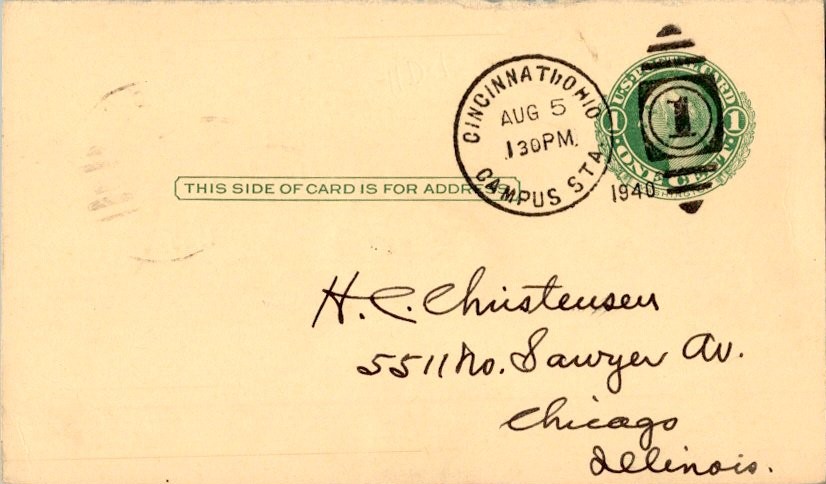 CINCINNATI, OHIO
AUG 5
1 30 PM
CAMPUS STA.
1940
U.S. POSTAL CARD
1 1 1
ONE CENT
THIS SIDE OF CARD IS FOR ADDRESS
H. C. Christensen
5511 No. Sawyer Av.
Chicago
Illinois.